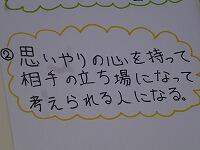 ②思いやりの心を持って
相手の立ち場になって
考えられる人になる。